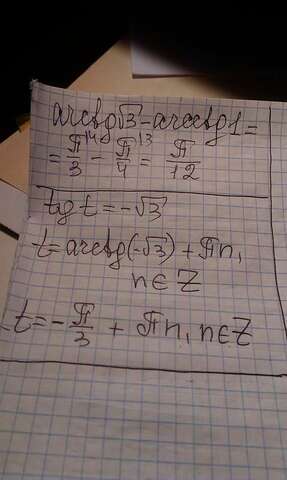 arctg√3-arcctg1=
=π/3\4 - π/4\3 = π/12
tg t=-√3
t=arctg(-√3)+πn,
n∈Z
t=-π/3 + πn, n∈Z